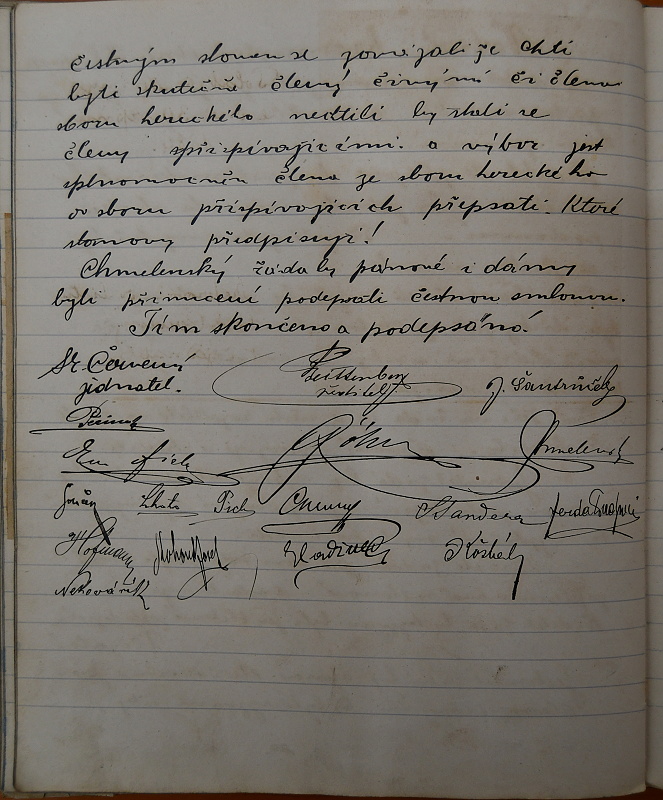 čestným slovem se zavázali že chtí
býti skutečně členy činými či členové
sboru hereckého nechtíli by stali se
členy přispívajícími. a výbor jest
splnomocněn člena ze sboru hereckého
do sboru přispívajících přepsati. Které
stanovy předpisují!
Chmelenský žádá by pánové i dámy
byli přinuceni podepsati čestnou smlouvu.
Tím skončeno a podepsáno.
Sr. Červený
jednatel.
ředitel J. Šantrůček
Em Fiela Böhm Chmelensk
Pich Standera
Hofmann Vladimír
Nekovářík